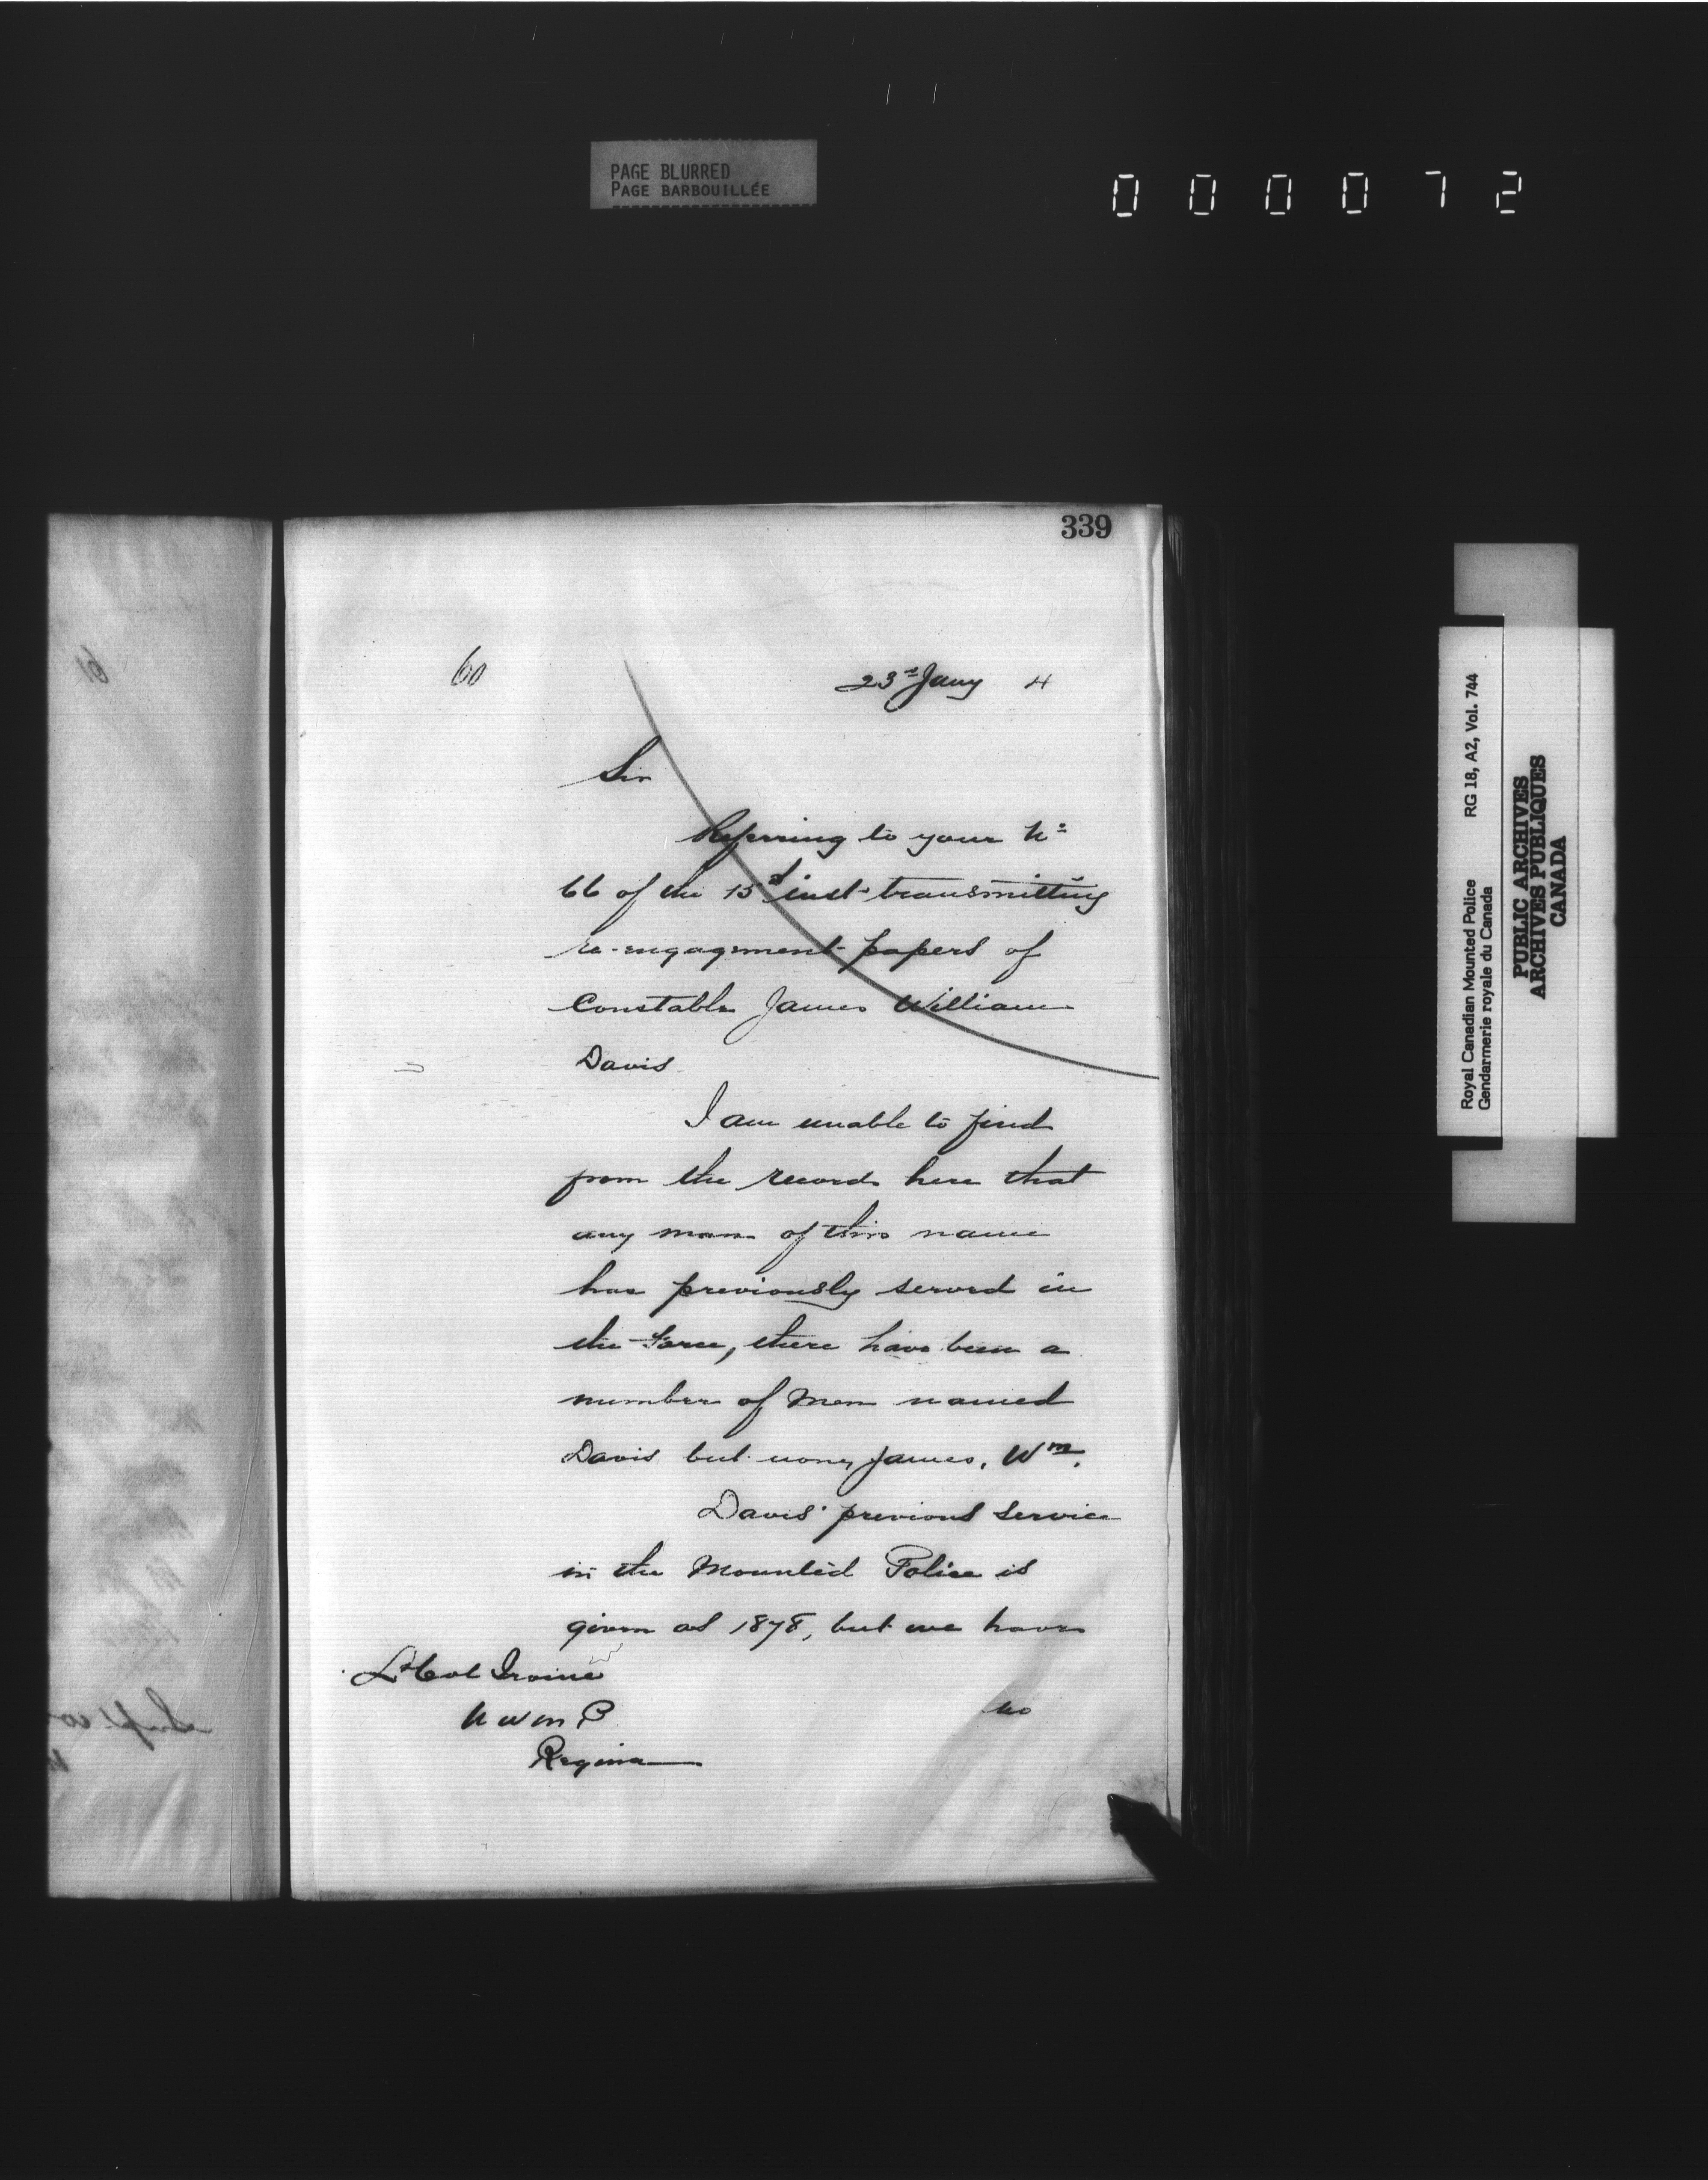 PAGE BLURRED
PAGE BARBOUILLÉE
000072
339
60
23rd Jany 4
Sir
Referring to your No
66 of the 15th inst. transmitting
re-engagement papers of
Constable James William
Davis.
I am unable to find
from the records here that
any man of this name
has previously served in
the Force, there have been a
number of Men named
Davis but none, James, Wm.
Davis' previous service
in the Mounted Police is
given as 1878, but we have
no
Lt Col Irvine
N W M P
Regina
Royal Canadian Mounted Police RG 18, A2, Vol. 744
Gendarmerie royale du Canada
PUBLIC ARCHIVES
ARCHIVES PUBLIQUES
CANADA